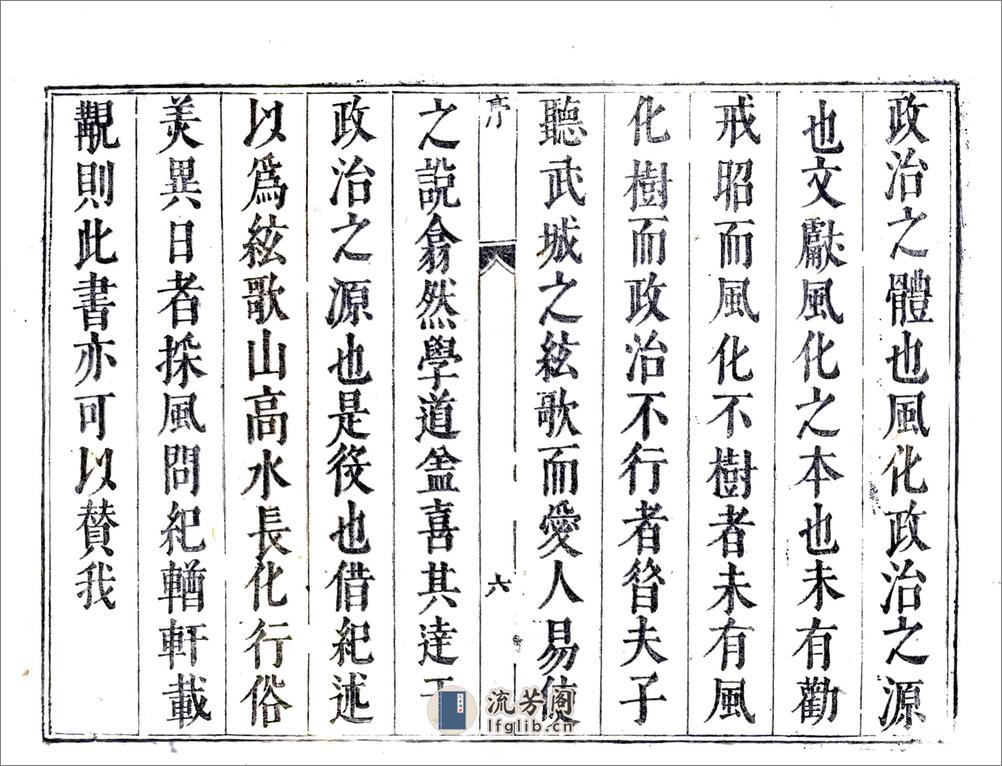 政治之體也風化政治之源
也文獻風化之本也未有勸
戒昭而風化不樹者未有風
化樹而政治不行者昝夫子
聽武城之絃歌而愛人易使
序
六
之說翕然學道盒喜其達于
政治之源也是役也借紀述
以爲絃歌山高水長化行俗
美異日者採風問紀輶軒載
觀則此書亦可以贊我
流芳阁
lfglib.cn